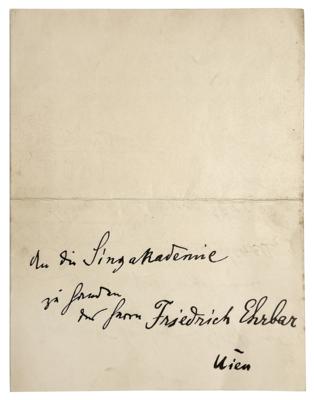 An die Singakademie
zu Handen
des Herrn Friedrich Ehrbar
Wien